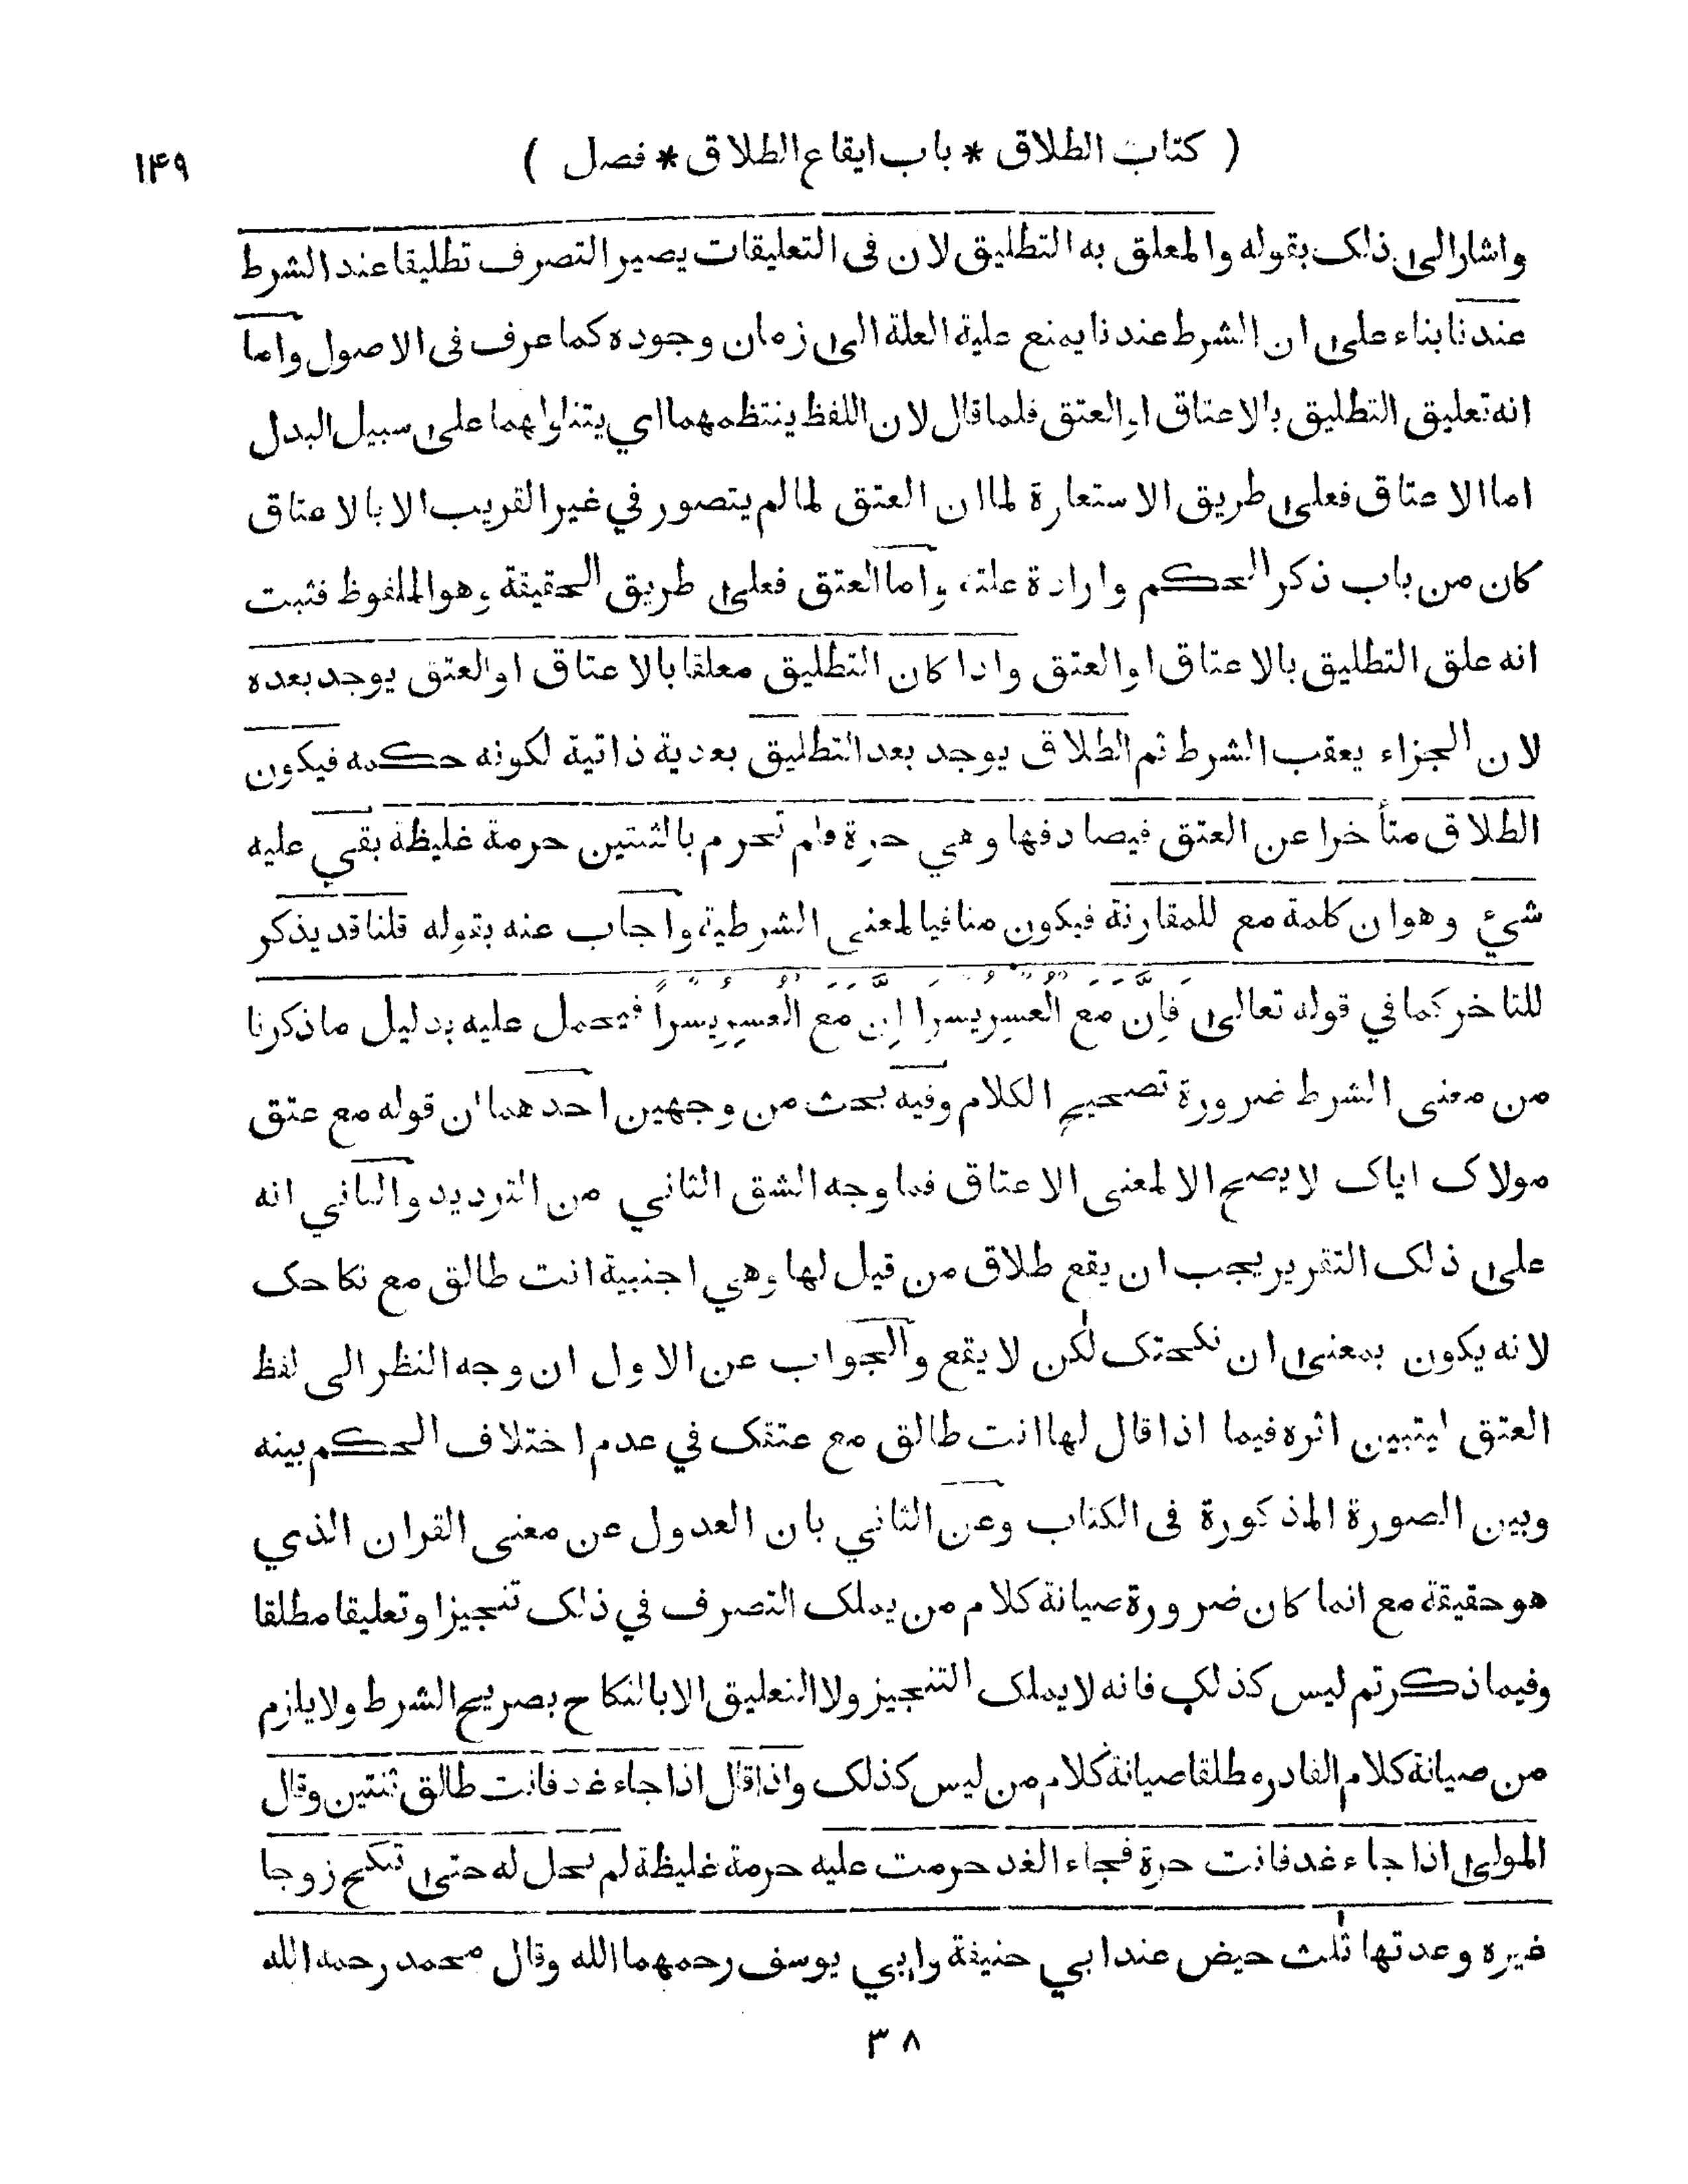 ( كتاب الطلاق * باب ايقاع الطلاق * فصل ) ١۴٩
واشار الى ذلك بقوله والمعلق به التطليق لان فى التعليقات يصير التصرف تطليقا عند الشرط
عندنا بناء على ان الشرط عندنا يمنع علية العلة الى زمان وجوده كما عرف فى الاصول واما
انه تعليق التطليق بالاعتاق او العتق فلما قال لان اللفظ ينتظمهما اي يتناولهما على سبيل البدل
اما الاعتاق فعلى طريق الاستعارة لما ان العتق لما لم يتصور في غير القريب الا بالاعتاق
كان من باب ذكر الحكم وارادة علته واما العتق فعلى طريق الحقيقة وهو الملفوظ فثبت
انه علق التطليق بالاعتاق او العتق واذا كان التطليق معلقا بالاعتاق او العتق يوجد بعده
لان الجزاء يعقب الشرط ثم الطلاق يوجد بعد التطليق بعدية ذاتية لكونه حكمه فيكون
الطلاق متأخرا عن العتق فيصادفها وهي حرة فلم تحرم بالثنتين حرمة غليظة بقي عليه
شيئ وهو ان كلمة مع للمقارنة فيكون منافيا لمعنى الشرطية واجاب عنه بقوله قلنا قد يذكر
للتاخر كما في قوله تعالى فَاِنَّ مَعَ الْعُسْرِ يُسْرًا اِنَّ مَعَ الْعُسْرِ يُسْرًا فيحمل عليه بدليل ما ذكرنا
من معنى الشرط ضرورة تصحيح الكلام وفيه بحث من وجهين احدهما ان قوله مع عتق
مولاك اياك لا يصح الا لمعنى الاعتاق فما وجه الشق الثاني من الترديد والثاني انه
على ذلك التقرير يجب ان يقع طلاق من قيل لها وهي اجنبية انت طالق مع نكاحك
لانه يكون بمعنى ان نكحتك لكن لا يقع والجواب عن الاول ان وجه النظر الى لفظ
العتق ليتبين اثره فيما اذا قال لها انت طالق مع عتقك في عدم اختلاف الحكم بينه
وبين الصورة المذكورة فى الكتاب وعن الثاني بان العدول عن معنى القران الذي
هو حقيقة مع انما كان ضرورة صيانة كلام من يملك التصرف في ذلك تنجيزا وتعليقا مطلقا
وفيما ذكرتم ليس كذلك فانه لا يملك التنجيز ولا التعليق الا بالنكاح بصريح الشرط ولا يلزم
من صيانة كلام القادر مطلقا صيانة كلام من ليس كذلك واذا قال اذا جاء غد فانت طالق ثنتين وقال
المولى اذا جاء غد فانت حرة فجاء الغد حرمت عليه حرمة غليظة لم تحل له حتى تنكح زوجا
غيره وعدتها ثلث حيض عند ابي حنيفة وابي يوسف رحمهما الله وقال محمد رحمه الله
٣٨